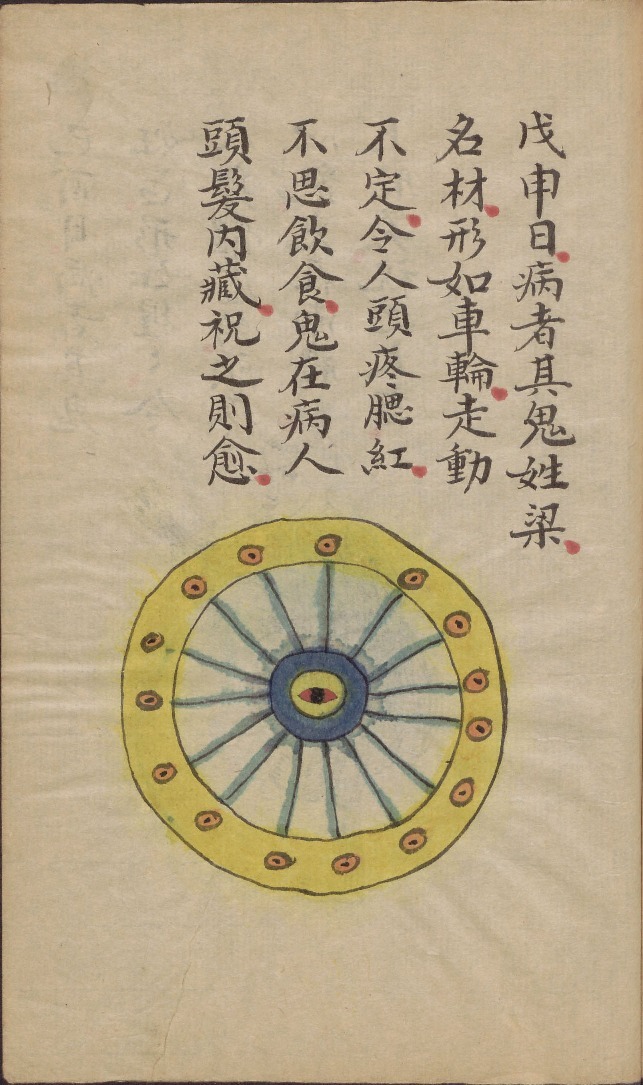 戊申日病者其鬼姓梁
名材形如車輪走動
不定令人頭疼腮紅
不思飲食鬼在病人
頭髮內藏祝之則愈